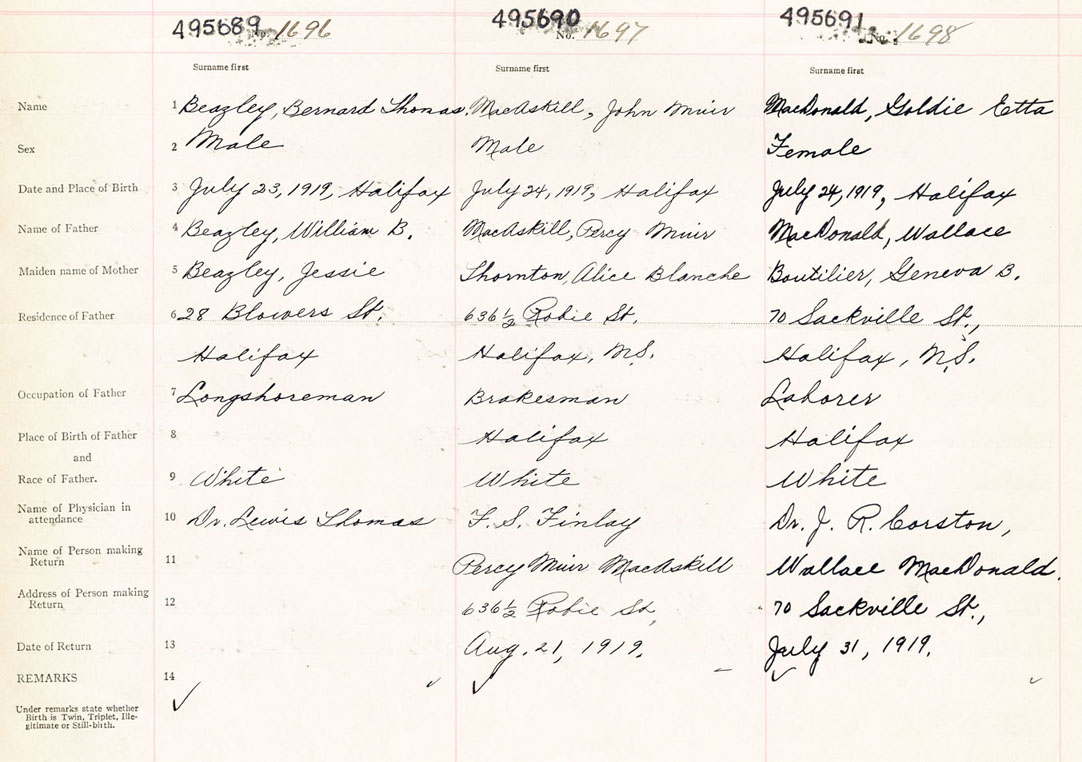 495689 No. 1696 495690 No. 1697 495691 No. 1698
Surname first Surname first Surname first
Name 1 Beazley, Bernard Thomas. MacAskill, John Muir MacDonald, Goldie Etta
Sex 2 Male Male Female
Date and Place of Birth 3 July 23, 1919, Halifax July 24, 1919, Halifax July 24, 1919, Halifax
Name of Father 4 Beazley, William B. MacAskill, Percy Muir MacDonald, Wallace
Maiden name of Mother 5 Beazley, Jessie Thornton, Alice Blanche Boutilier, Geneva B.
Residence of Father 6 28 Blowers St. 636½ Robie St. 70 Sackville St.,
Halifax Halifax, N.S. Halifax, N.S.
Occupation of Father 7 Longshoreman Brakesman Laborer
Place of Birth of Father 8 Halifax Halifax
and
Race of Father. 9 White White White
Name of Physician in
attendance 10 Dr. Lewis Thomas F. S. Finlay Dr. J. R. Corston,
Name of Person making
Return 11 Percy Muir MacAskill Wallace MacDonald.
Address of Person making
Return 12 636½ Robie St, 70 Sackville St.,
Date of Return 13 Aug. 21, 1919. July 31, 1919.
REMARKS 14
Under remarks state whether
Birth is Twin, Triplet, Ille-
gitimate or Still-birth.